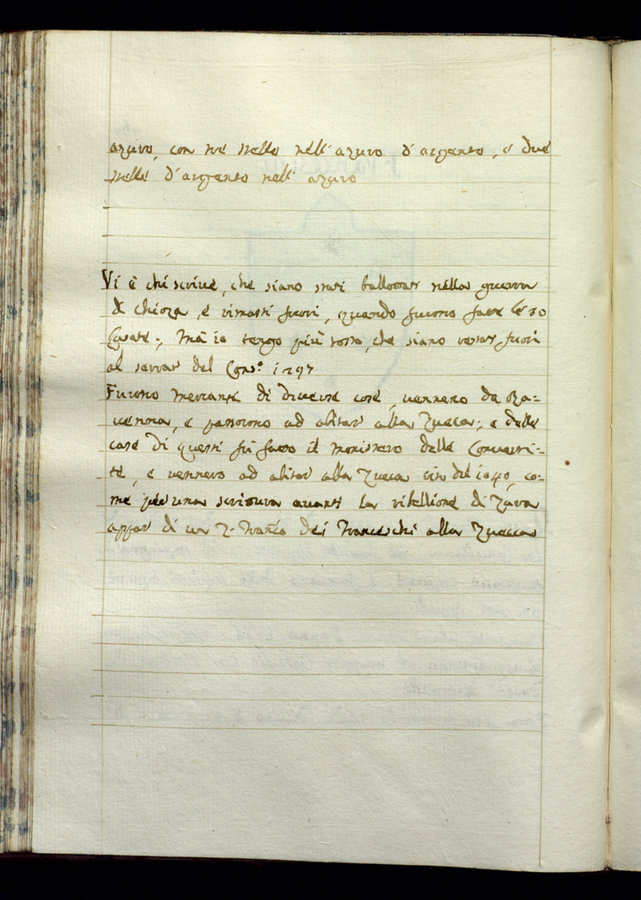 azuro, con tre stelle nell' azuro d'argento, e due
stelle d'argento nell' azuro
Vi è chi scrive, che siano stati ballottati nella guerra
di Chioza, e rimasti fuori, quando furono fatte le 30
Casate; Mà io tengo più tosto, che siano restati fuori
al serrar del Cons.º 1297
Furono mercanti di diverse cose, vennero da Ra-
venna, e passorono ad abitar alla Zueca; e delle
case di questi fù fatto il monistero delle Converti-
te, e vennero ad abitar alla Zueca cir. del 1040, co-
me per una scrittura avanti la ribellione di Zara
appar di un Z. Franc.º dei Franceschi alla Zuecca